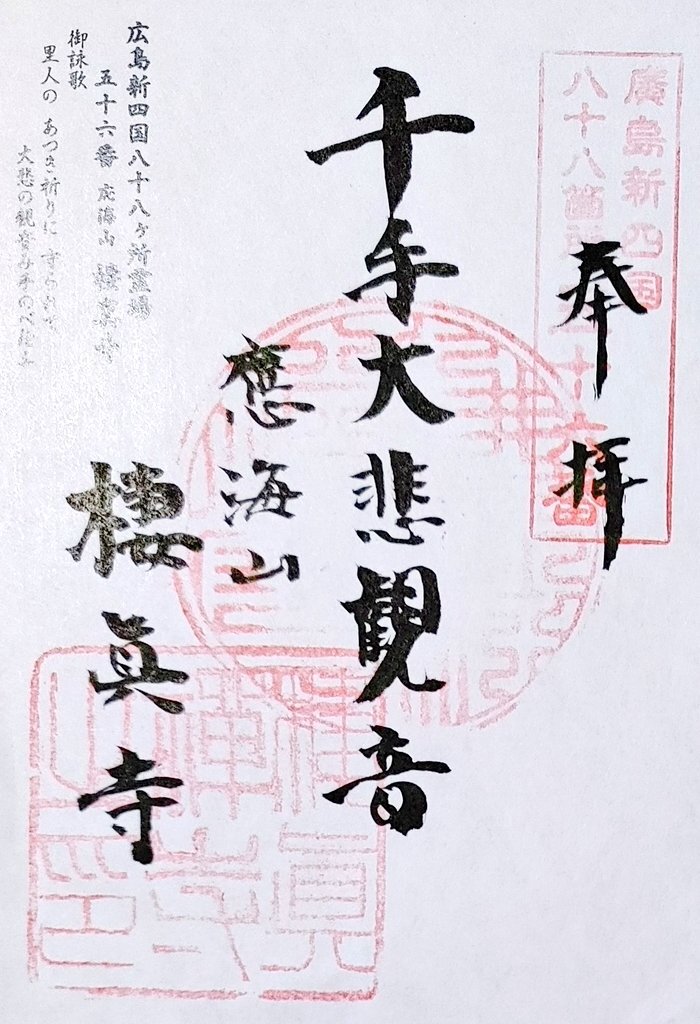 廣島新四国
八十八箇所
五十六番
奉拝
千手大悲観音
應海山
棲眞寺
広島新四国八十八ヶ所霊場
五十六番 応海山 棲真寺
御詠歌
里人の あつき祈りに
大悲の観音み手のべ給う
棲眞
禅寺
山印